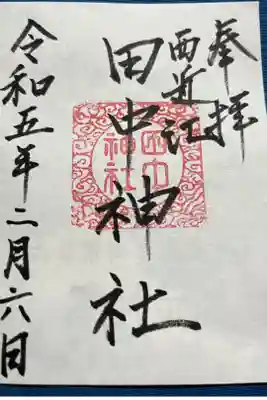 奉拝
西近江
田中神社
田中神社
令和五年二月六日